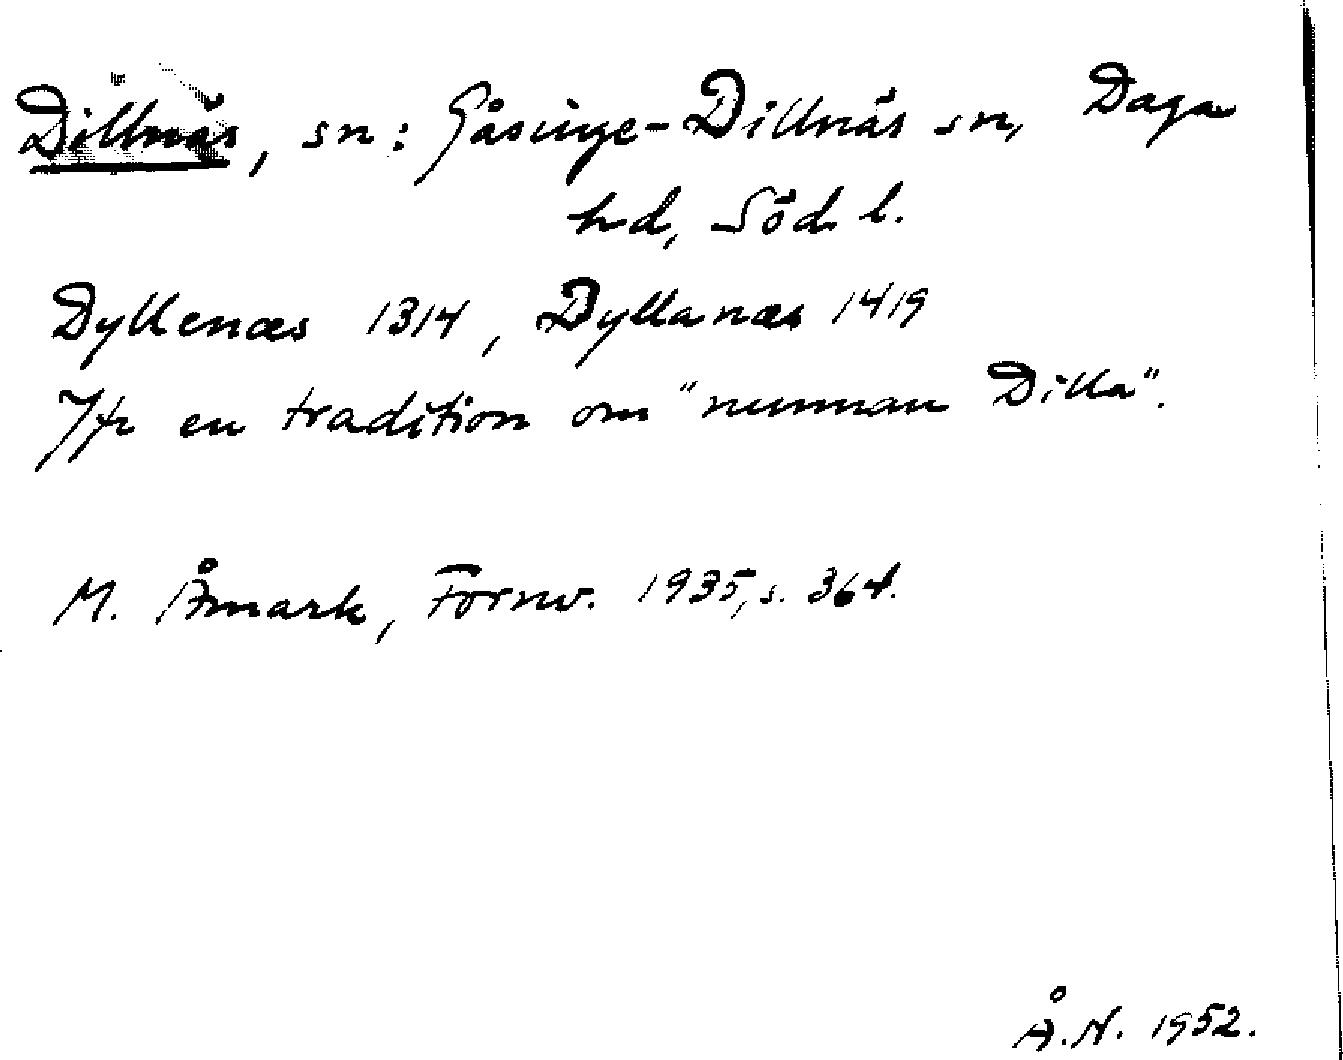 Dillnäs, sn: Gåsinge-Dillnäs sn, Daga
hd, Söd. l.
Dyllenæs 1314, Dyllanæs 1419
Jfr en tradition om "nunnan Dilla".
M. Åmark, Fornv. 1935, s. 364.
Å.N. 1952.